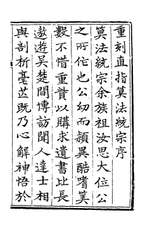 重刻直指算法統宗序
算法統宗余族祖汝思大位公
之所作也公幼而穎異酷嗜算
數不惜重貲以購求遺書比長
遨遊吳楚間博訪聞人達士相
與剖析毫芒既乃心解神悟於